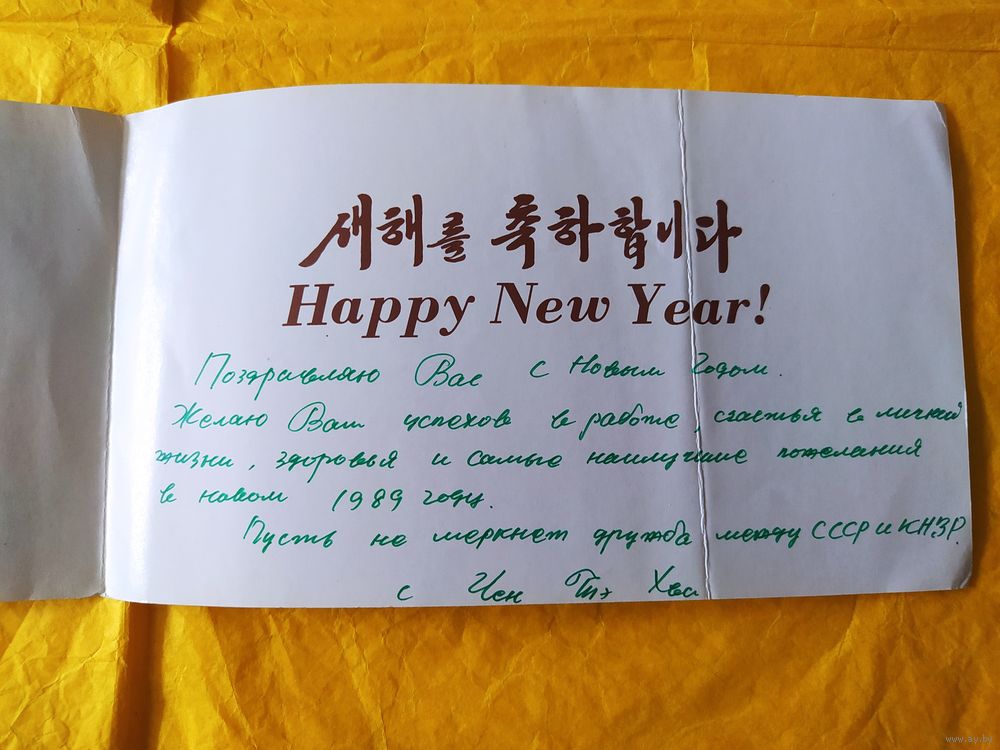 새해를 축하합니다
Happy New Year!
Поздравляю Вас с Новым Годом.
Желаю Вам успехов в работе, счастья в личной
жизни, здоровья и самые наилучшие пожелания
в новом 1989 году.
Пусть не меркнет дружба между СССР и КНДР.
с Чен Тэ Хва
www.ay.by